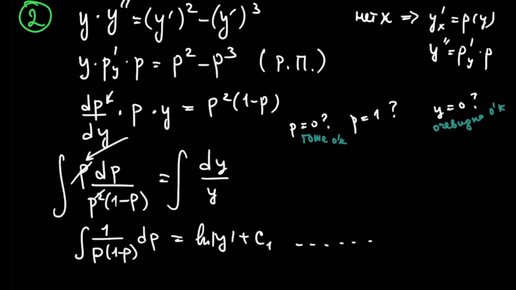 ② y · y'' = (y')² − (y')³
нет x ⇒ y'ₓ = p(y)
y'' = p'_y · p
y · p'_y · p = p² − p³ (Р.П.)
dp/dy · p · y = p²(1−p)
p=0? p=1? y=0?
тоже ок очевидно ок
∫ p dp / p²(1−p) = ∫ dy / y
∫ 1/p(1−p) dp = ln|y| + C₁ .......